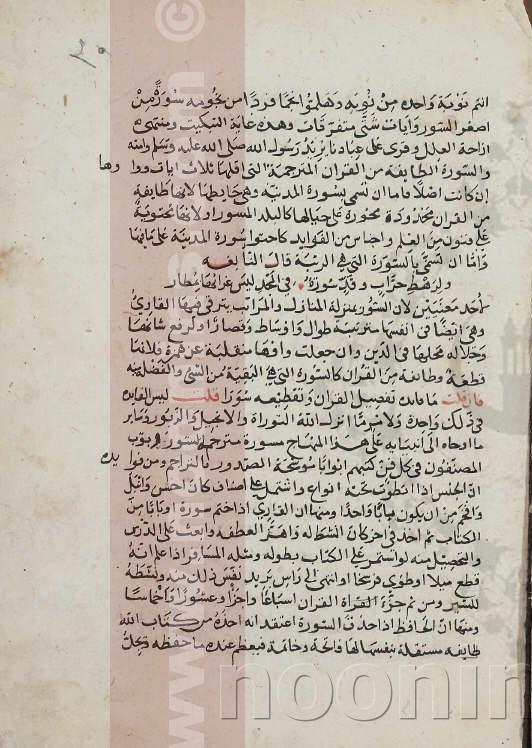 انتم نوبة واحدة من نوبه وهلموا نجما فردا من نجومه سورة من
اصغر السور وايات شتى متفرقات وهذه غاية التبكيت ومنتهى
ازاحة العلل وقرى على عبادنا يريد رسول الله صلى الله عليه وسلم وامته
والسورة الطايفة من القران المترجمة التي اقلها ثلاث ايات وواوها
ان كانت اصلا فاما ان تسمى بسورة المدينة وهي حايطها لانها طايفة
من القران محدودة محوزة على حيالها كالبلد المسور او لانها محتوية
على فنون من العلم واجناس من الفوايد كاحتوا سورة المدينة على ما فيها
واما ان تسمى بالسورة التي هي الرتبة قال النابغه
ولرهط حراب وقد سورة في المجد ليس غرابها بمطار
لاحد معنيين لان السور بمنزلة المنازل والمراتب يترقى فيها القاري
وهي ايضا في انفسها مترتبة طوال واوساط وقصار او لرفع شانها
وجلاله محلها في الدين وان جعلت واوها منقلبة عن همزة فلانها
قطعة وطايفة من القران كالسورة التي هي البقية من الشي والفضلة منه
فان قلت ما فايدة تفصيل القران وتقطيعه سورا قلت ليس الفايدة
في ذلك واحدة ولامر ما انزل الله التوراة والانجيل والزبور وساير
ما اوحاه الى انبيايه على هذا المنهاج مسورة مترجمة السور وبوب
المصنفون في كل فن كتبهم ابوابا موشحة الصدور بالتراجم ومن فوايده
ان الجنس اذا انطوت تحته انواع واشتمل على اصناف كان احسن وانبل
وافخم من ان يكون بابا واحدا ومنها ان القاري اذا ختم سورة او بابا من
الكتاب ثم اخذ في اخر كان انشط له واهز لعطفه وابعث على الدرس
والتحصيل منه لو استمر على الكتاب بطوله ومثله المسافر اذا علم انه
قطع ميلا او طوى فرسخا او انتهى الى راس بريد نفس ذلك منه ونشطه
للسير ومن ثم جزء القراة القران اسباعا واجزا وعشورا واخماسا
ومنها ان الحافظ اذا حذق السورة اعتقد انه اخذ من كتاب الله
طايفه مستقلة بنفسها لها فاتحة وخاتمة فيعظم عنده ما حفظه ويجل
noorin